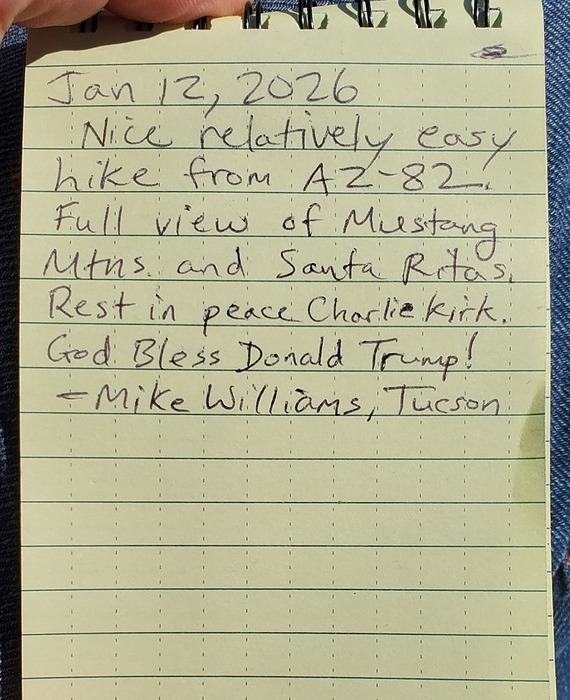 Jan 12, 2026
Nice relatively easy
hike from AZ-82.
Full view of Mustang
Mtns. and Santa Ritas.
Rest in peace Charlie Kirk.
God Bless Donald Trump!
-Mike Williams, Tucson